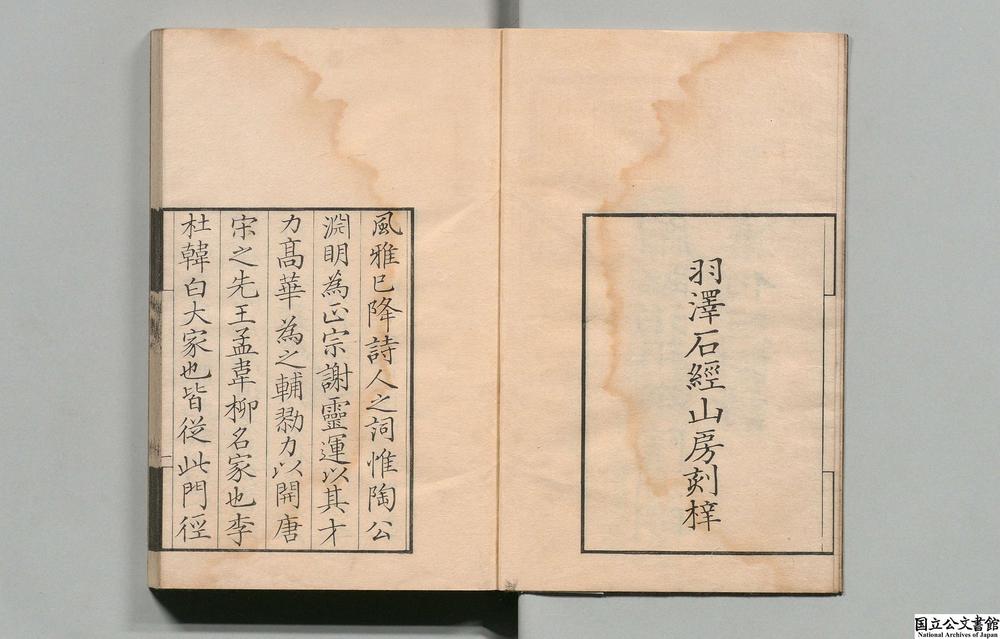 羽澤石經山房刻梓
風雅已降詩人之詞惟陶公
淵明為正宗謝靈運以其才
力髙華為之輔勠力以開唐
宋之先王孟韋柳名家也李
杜韓白大家也皆從此門徑
国立公文書館
National Archives of Japan